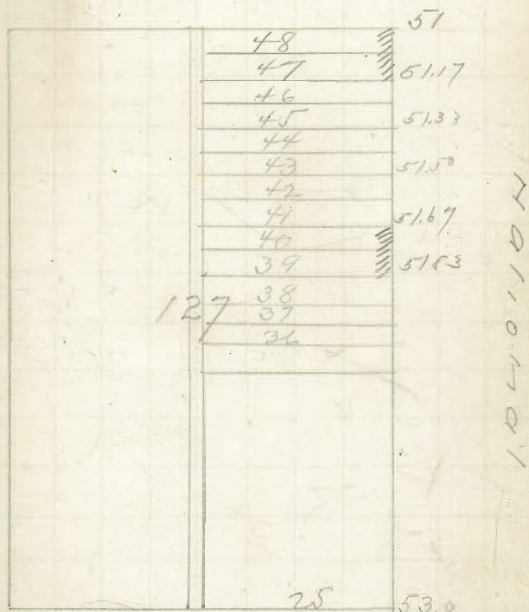 51
48
47 51.17
46
45 51.33
44
43 51.50
42
41 51.67
40
39 51.83
38
127 37
36
25 53.0
National